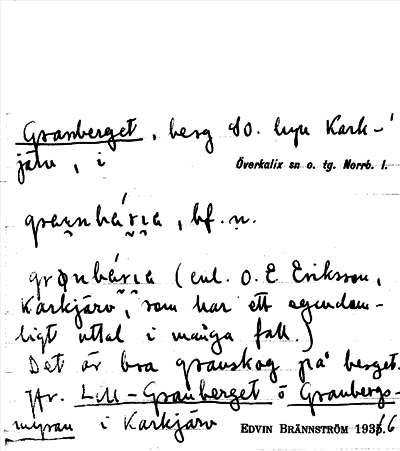 Granberget, berg SO. byn Kark-
järv, i Överkalix sn o. tg. Norrb. l.
bf. n.
(enl. O. E. Eriksson,
Karkjärv, som har ett egendom-
ligt uttal i många fall.)
Det är bra granskog på berget.
Jfr. Lill-Granberget o Granbergs-
myran i Karkjärv EDVIN BRÄNNSTRÖM 1936